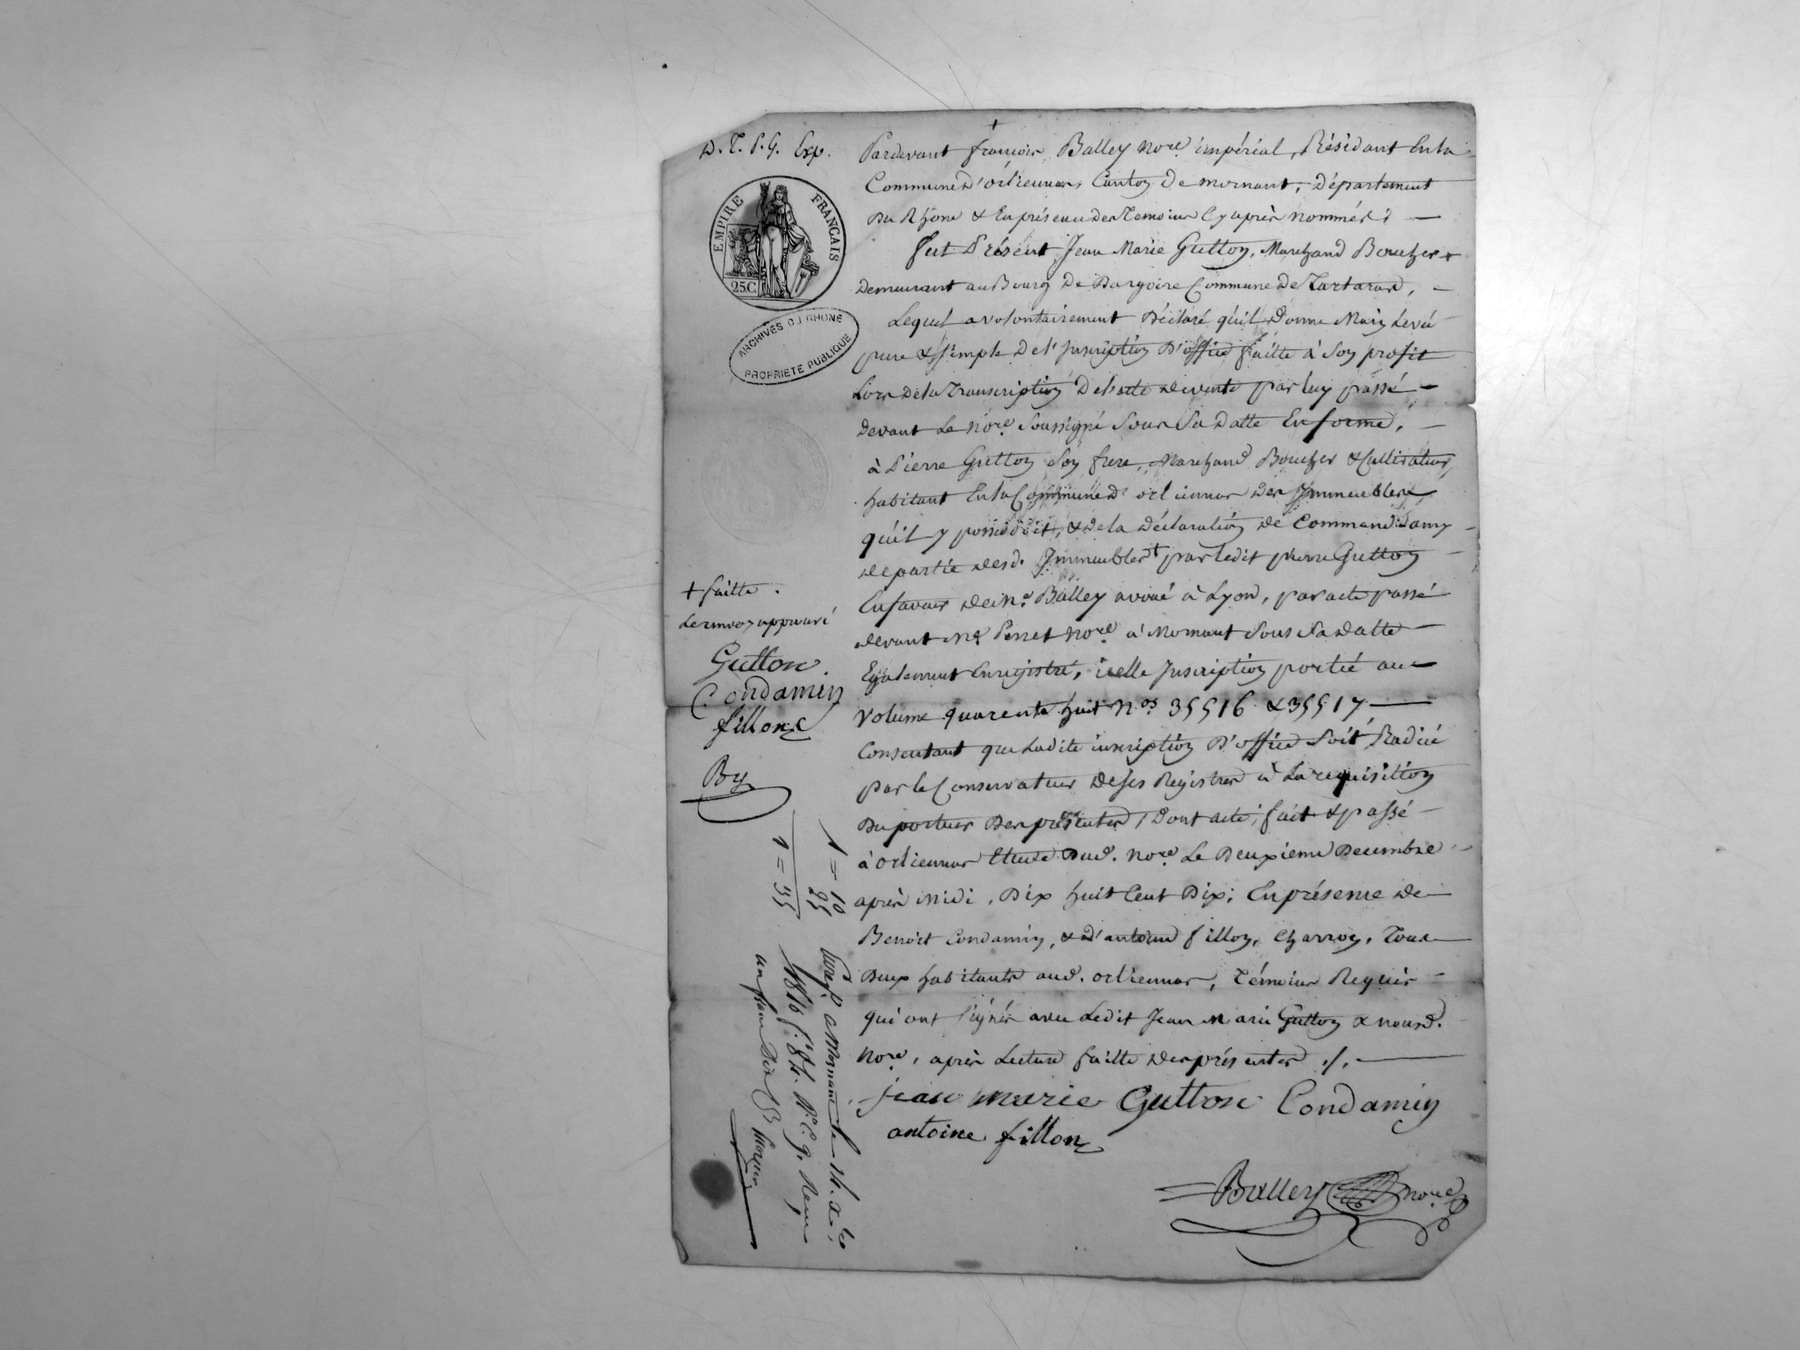 D. T. P. G. Exp.
EMPIRE FRANÇAIS
25C
ARCHIVES DU RHONE
PROPRIETE PUBLIQUE
Pardevant françois Balley Nore. impérial, Résidant En la
Commune d'orliennas, Canton de mornant, Département
du Rhône & En présence des Temoins Cy après Nommés ;
fut Présent Jean Marie Gutton, Marchand Boucher
Demeurant au Bourg de Dargoire Commune de Tartaras,
Lequel a volontairement Déclaré qu'il Donne Main Levée
pure & simple de l'Inscription D'office faitte à Son profit
Lors de la Transcription De l'acte de vente par luy passé
Devant Le Nore. Soussigné Sous Sa Datte En forme,
à Pierre Gutton Son frere, Marchand Boucher & Cultivateur
habitant En la Commune d'orliennas des Immeubles
qu'il y possédoit, & de la Déclaration de Command d'amy
de partie desd. Immeubles + par ledit pierre Gutton
En faveur de mr. Balley avoué à Lyon, par acte passé
devant me. Perret Nore. a Mornant Sous Sa datte
Egalement Enregistré, icelle Inscription portée au
Volume quarente huit Nos. 35516 & 35517
Consentant que Ladite inscription D'office Soit Radiée
par le Conservateur de ses Registres à La requisition
Du porteur Des présentes, Dont acte, fait & passé
à orliennas Etude Dud. Nore. Le Deuxieme Decembre
après Midi, Dix huit Cent Dix ; En présence de
Benoit Condamin, & d'antoine fillon, Charron, Tous
Deux habitants aud. orliennas, Témoins Requis
qui ont Signés avec Ledit Jean Marie Gutton & nousd.
Nore, après Lecture faitte des présentes ./.
jean marie Gutton Condamin
antoine fillon
Balley nore
+ faitte.
Le renvoy approuvé
Gutton
Condamin
fillon
By
1 = 10
25
1 = 35
Enregé. a Mornant le 14. Xbre
1810 fo. 84. Ro. C. 9. Reçu
un franc Dix Cs